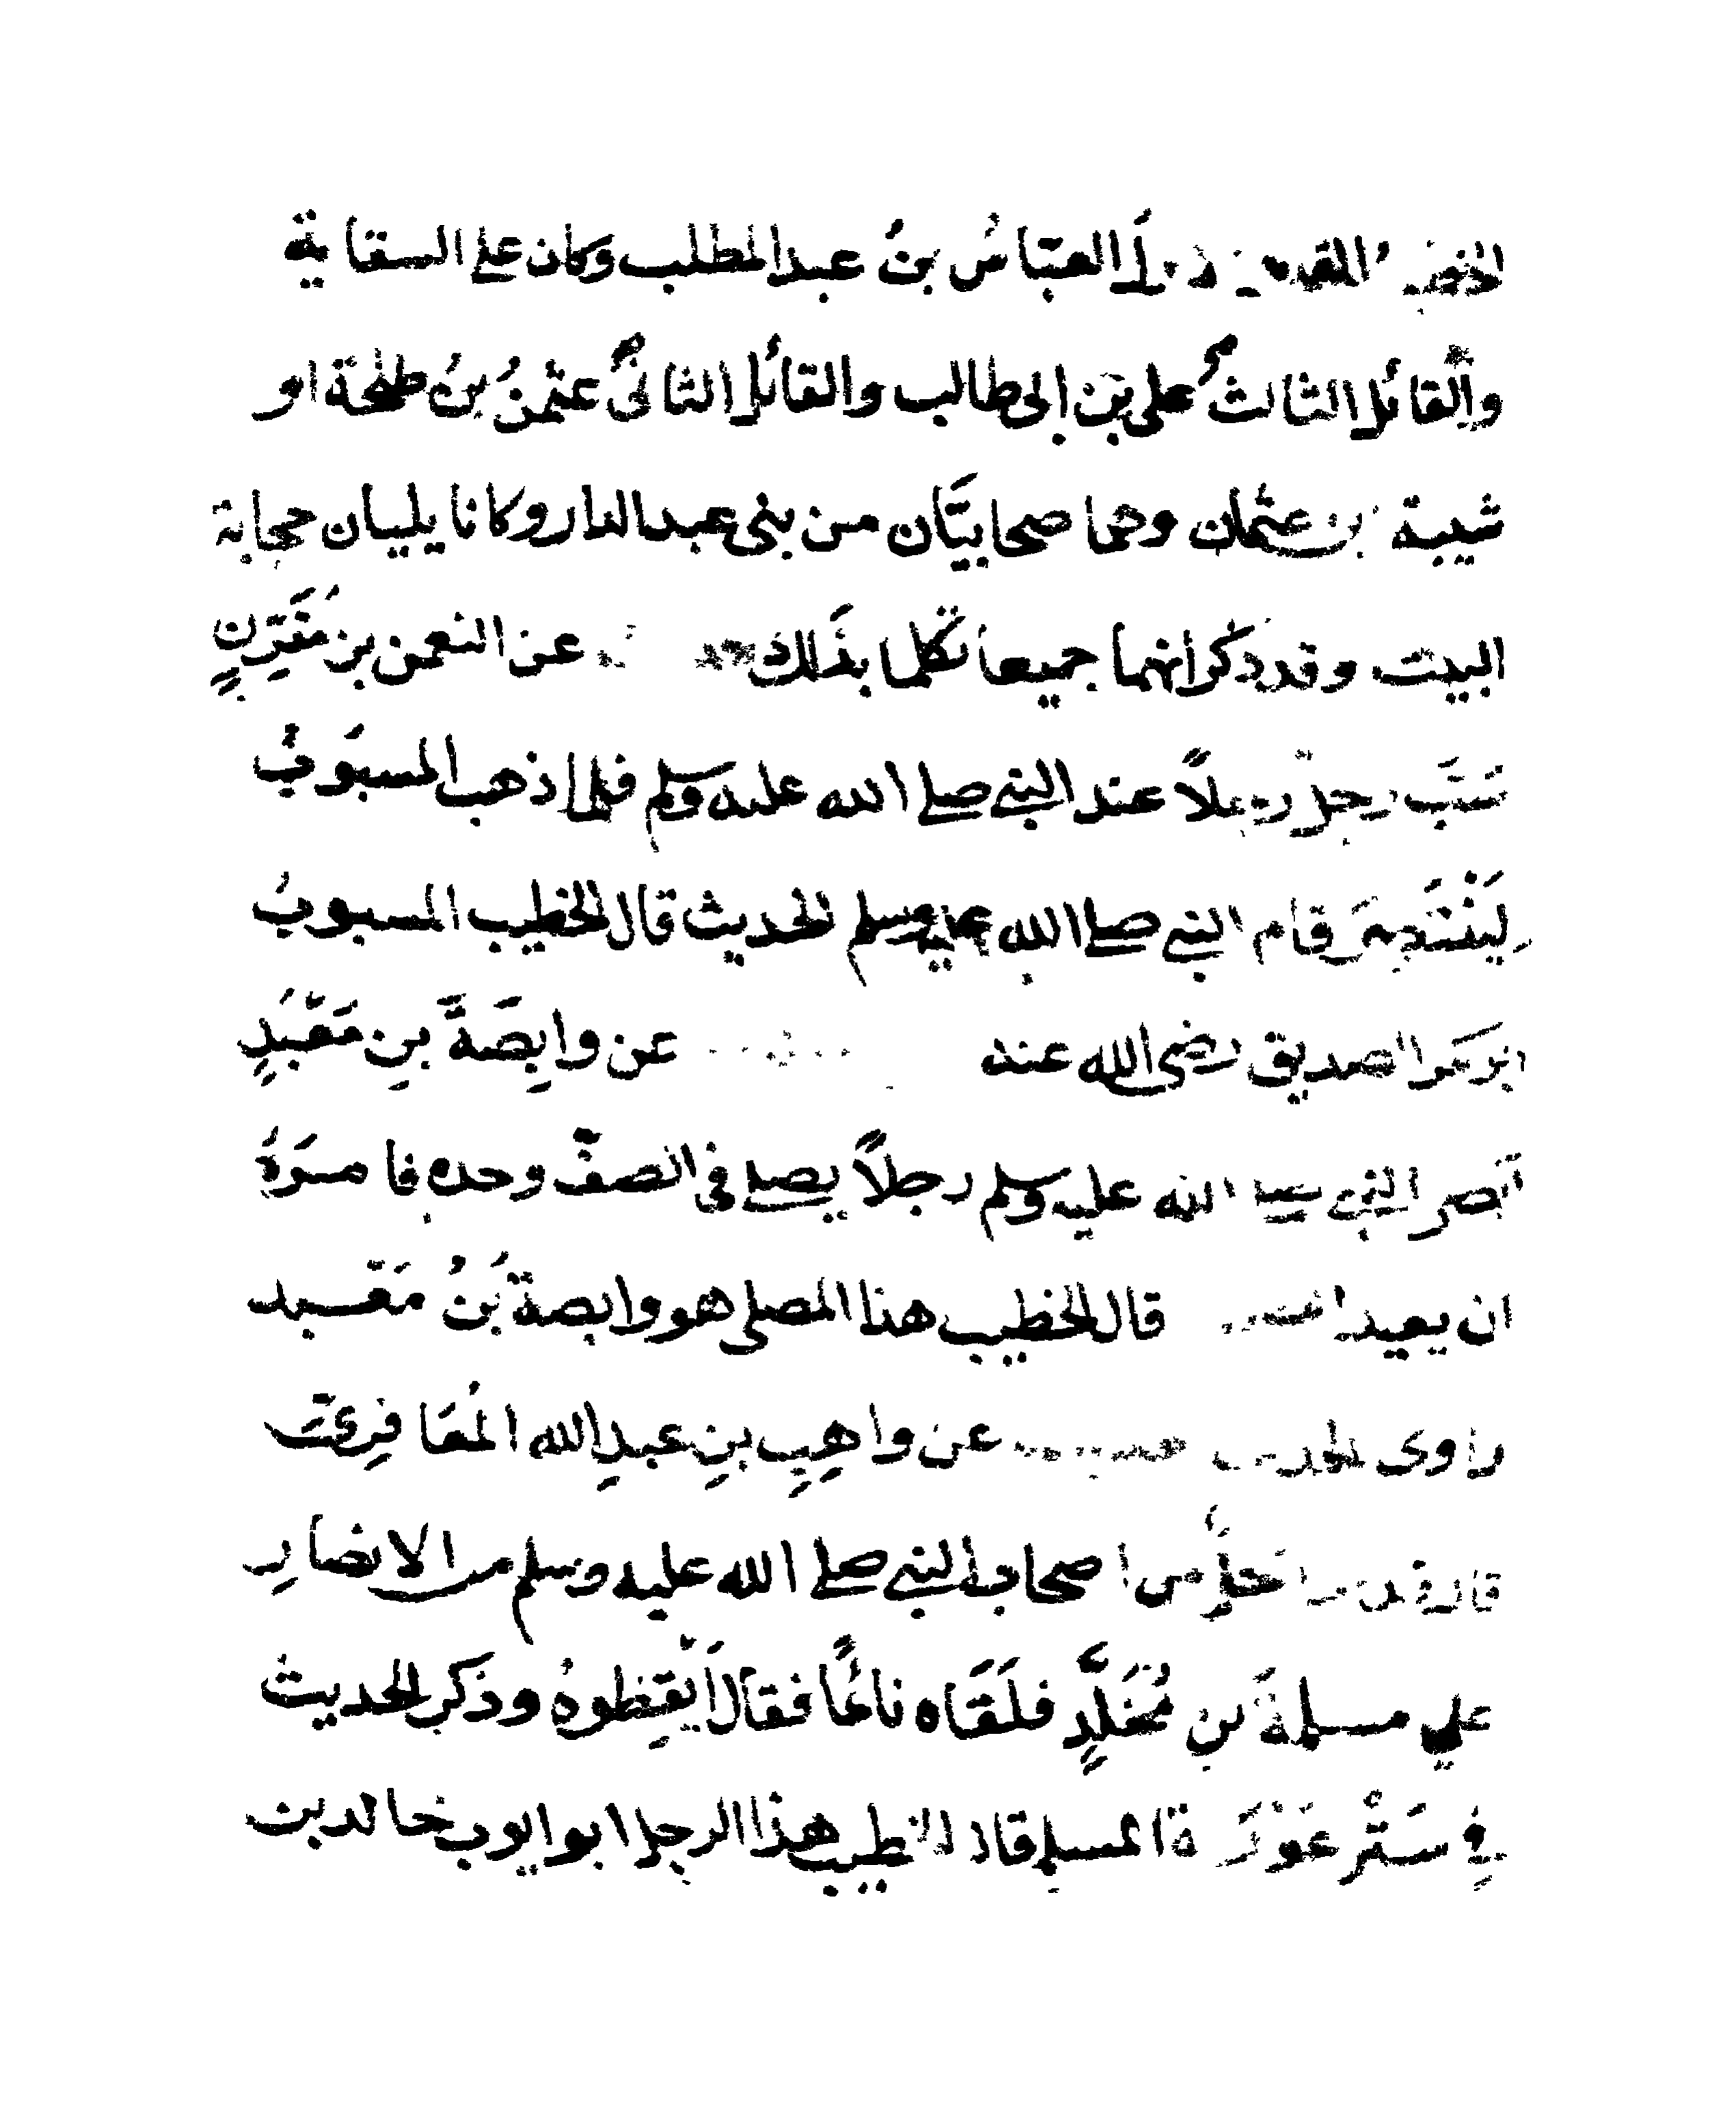 العبّاسُ بنُ عبد المطلب وكان على السقاية
والقائل الثالث علي بن ابى طالب والقائل الثانى عثمنُ بنُ طلحة او
شيبة بن عثمان وهما صحابيَّان من بنى عبد الدار وكانا يليان حجابة
البيت وقد ذكر انهما جميعا تكلما بذلك عن النعمن بن مُقَرِّنٍ
سَبَّ رجلٌ رجلاً عند النبي صلى الله عليه وسلم فلما ذهب المسبوبُ
لِيَنْتَصِرَ قام النبي صلى الله عليه وسلم الحديث قال الخطيب المسبوبُ
ابو بكر الصديق رضى الله عنه عن وابِصَةَ بنِ مَعْبَدٍ
ابصر النبي صلى الله عليه وسلم رجلاً يصلي فى الصفّ وحده فامرهُ
ان يعيد قال الخطيب هذا المصلى هو وابصةُ بنُ مَعْبد
راوى الحديث عن واهِبِ بنِ عبدِ الله المُعَافِرِيِّ
رجلٌ من اصحاب النبي صلى الله عليه وسلم من الانصارِ
على مسلمةَ بنِ مُخَلَّدٍ فلَقَاه نائمًا فقال أَيْقِظوهُ وذكر الحديث
فِى سَتْرِ عَوْرَةِ المسلم قال الخطيب هذا الرجل ابو ايوب خالد بن